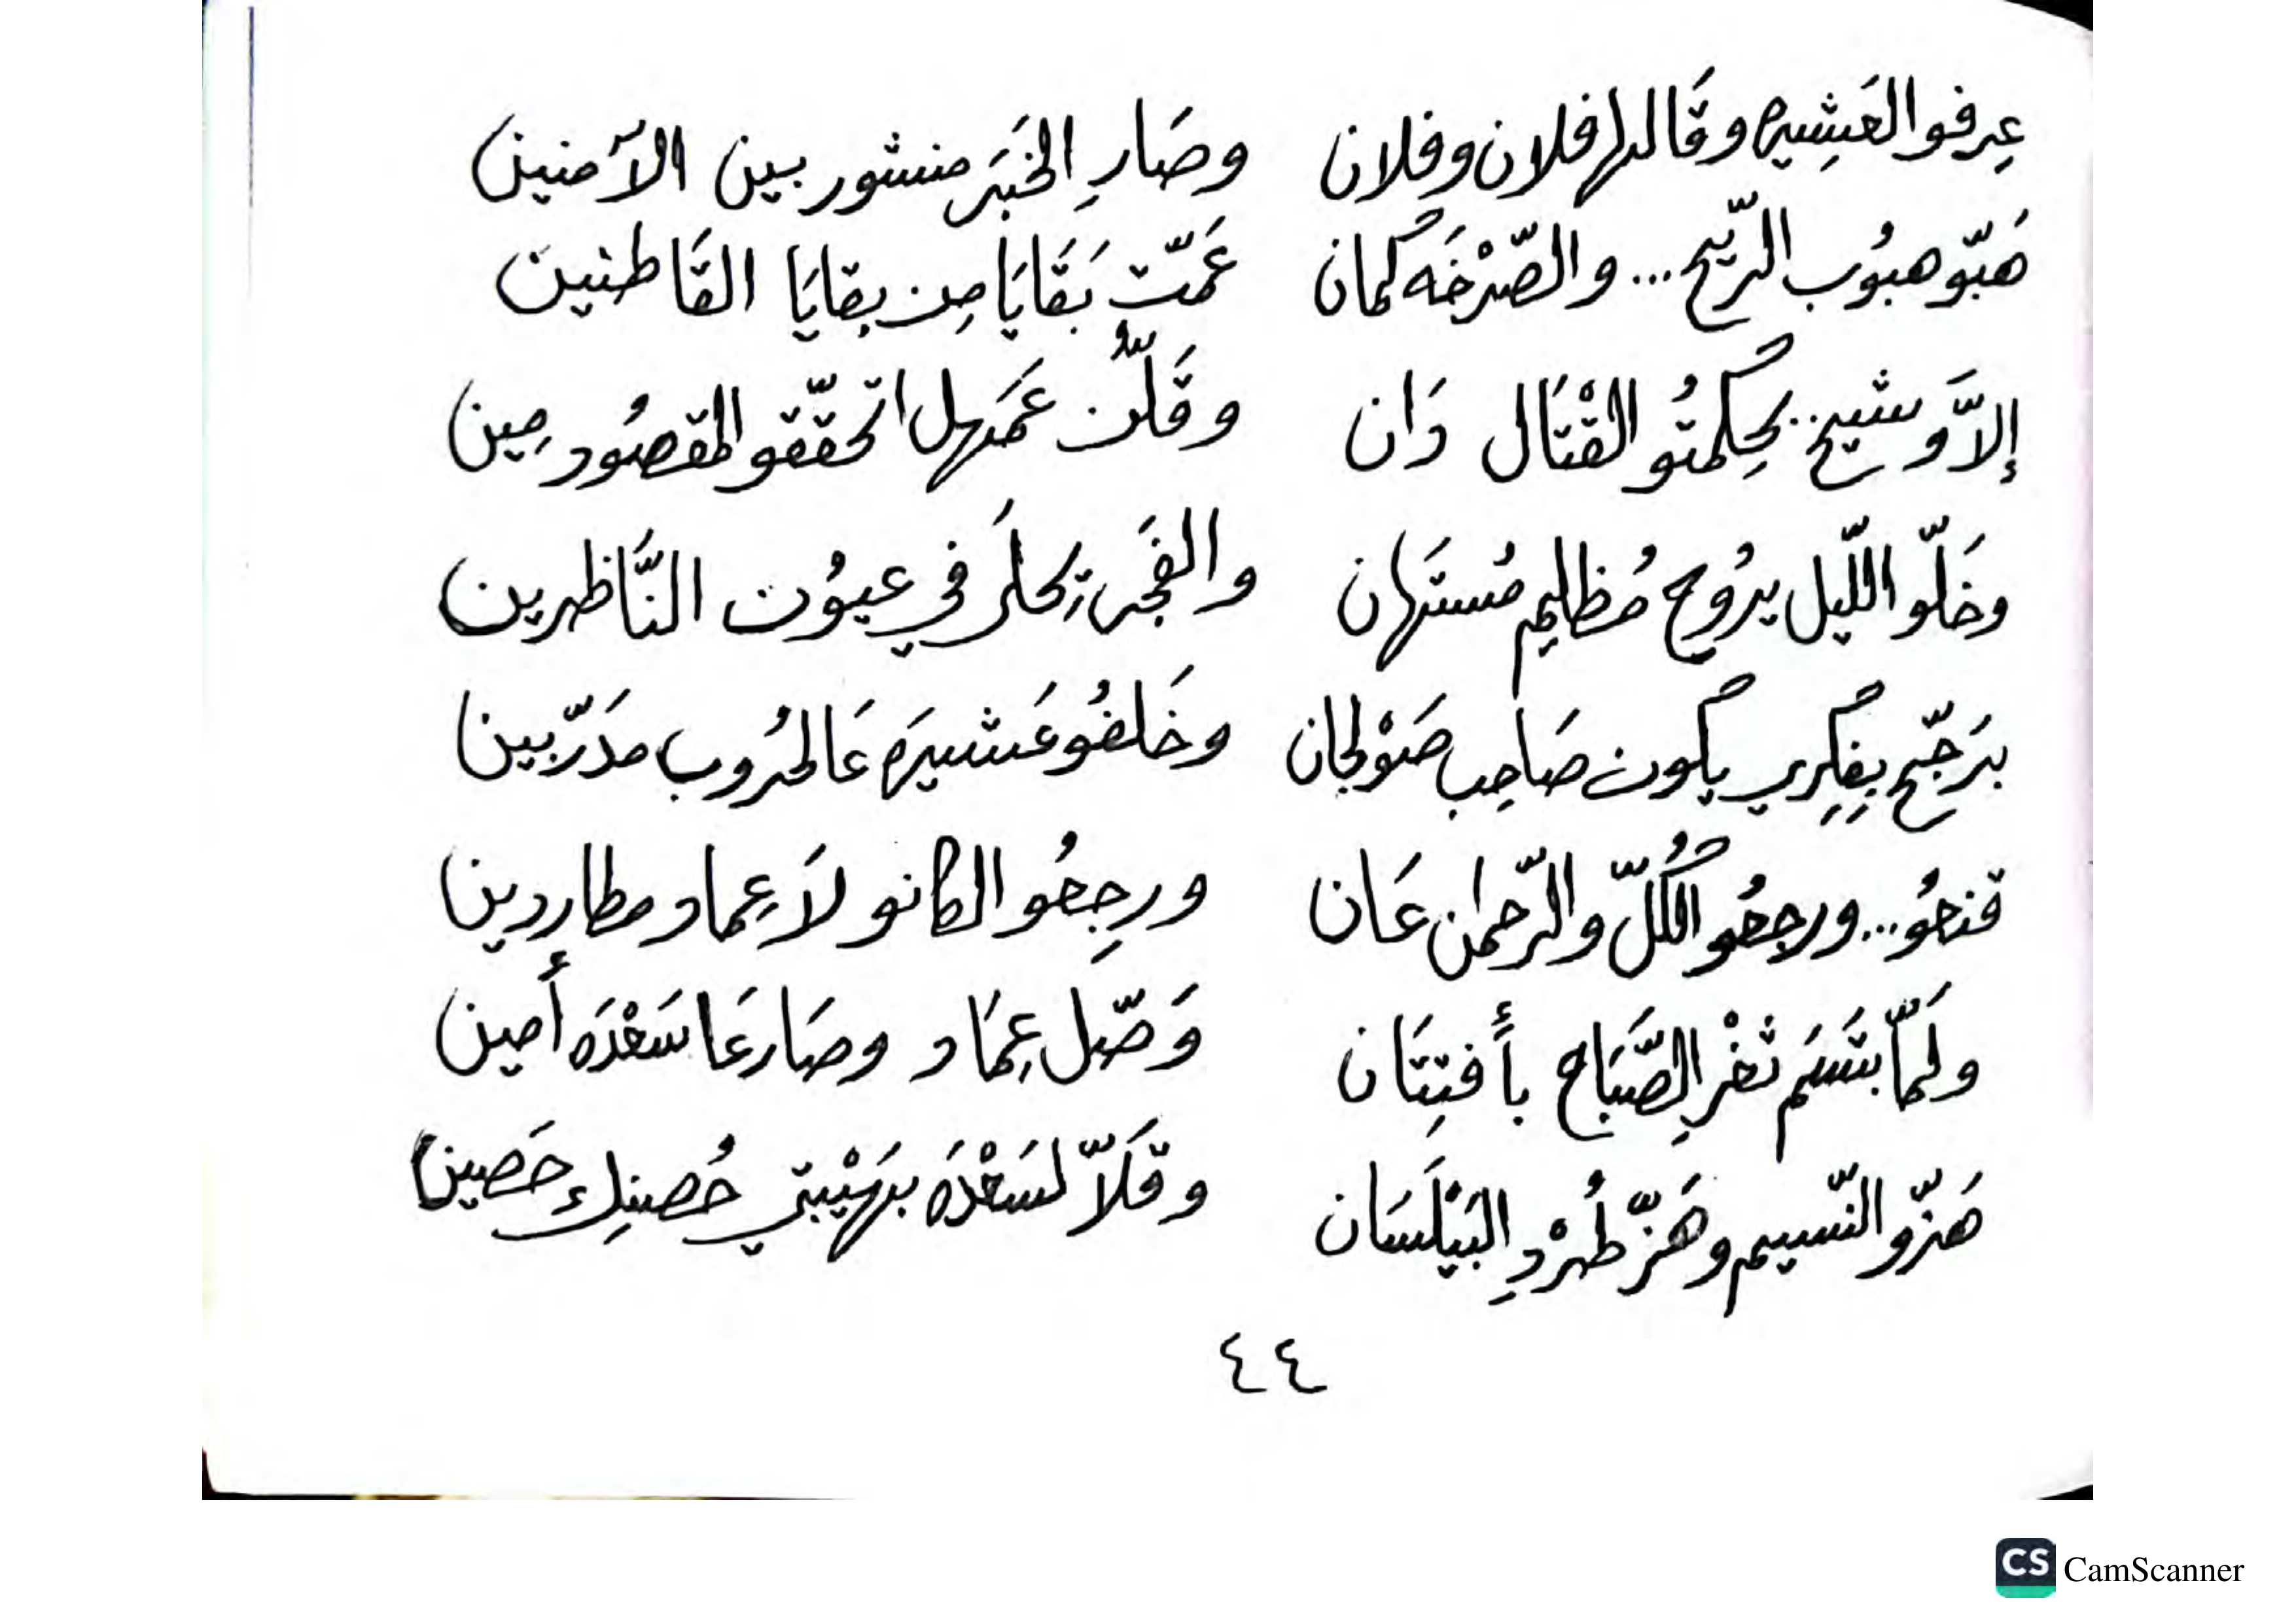 عِرفو العَشِيره وقَالها فلان وفلان وصَارِ الخَبَر منشور بين الآمنين
هَبّو هبُوب الرّيح... والصّرْخَه كمان عَمّت بَقَايَا مِن بقايَا القَاطنين
إلاَّ وشيخ.. بحِكمتُو القْتَال دَان وقَلُّن عَمَهل اتحقّقو المقصُود مِين
وخَلّو اللّيل يرُوح مُظالِم مُستَهان والفَجَر تِحلَر في عيُون النَّاظرين
برَجّح بِفِكِري يكُون صَاحِب صَوْلجان وخَلفُو عَشيرَه عَالحرُوب مدَرّبين
قنعُو... ورجعُو الكُلّ والرّحمان عَان ورجِعُو الكانو لَعِماد مطارِدين
ولَمّا بتَسَم ثغْرِ الصَّبَاح بأفتِتَان وَصّل عِمَاد وصَار عَا سَعْدَه أَمين
هَزّو النّسيم وهَزّ طُرْدِ البَيْلَسَان وقَلاّ لسَعْدَه بهَيْبتي حُصنِك حَصين
٤٤
CS CamScanner